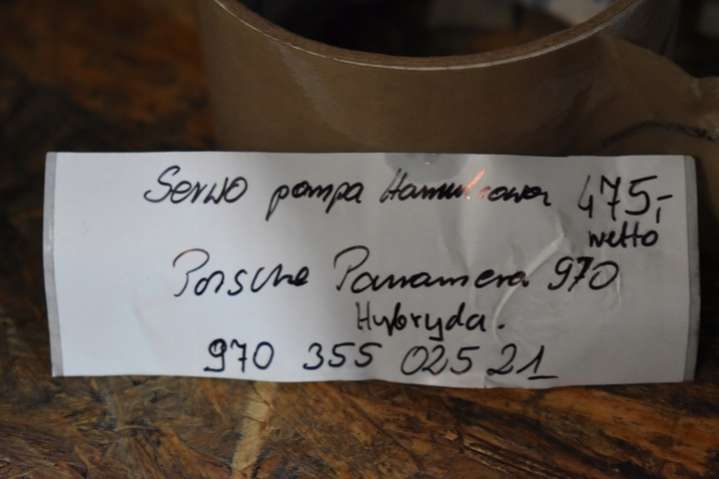 Serwo pompa Hamulcowa 475,-
netto
Porsche Panamera 970
Hybryda.
970 355 025 21